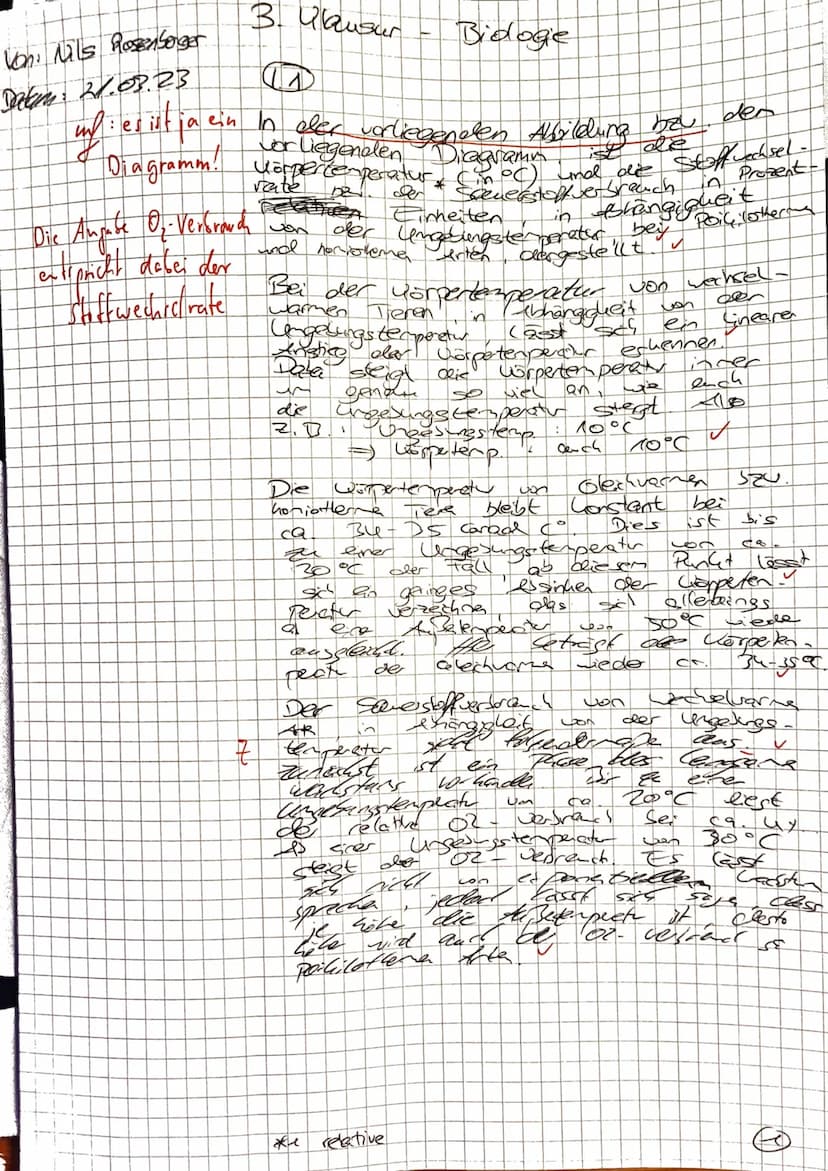 3. Klausur - Biologie
Von: Nils Rosenberger
Datum: 21.03.23
(1)
unf: es ist ja ein
Diagramm!
Die Angabe O2-Verbrauch
entspricht dabei der
Stoffwechselrate
In der vorliegenden Abbildung bzw. dem
vorliegenden Diagramm ist die
Körpertemperatur (in °C) und die Stoffwechsel-
rate der * Sauerstoffverbrauch in Prozent
Einheiten, in Abhängigkeit
von der Umgebungstemperatur bei Poikilotherme
und homiotherme Arten, dargestellt. ✓
Bei der Körpertemperatur von wechsel-
warmen Tieren, in Abhänggkeit von der
Umgebungstemperatur, lässt sich ein linearer
Anstieg der Körpetemperatur erkennen.
Dabei steigt die Körpertemperatur immer
um genau so viel an, wie auch
die Umgebungstemperatur steigt. Also
z.B.: Umgebungstemp.: 10°C
=> Körpetemp.: auch 10°C ✓
Die Körpertemperatur von Gleichwarmen bzw.
homiotherme Tiere bleibt konstant bei
ca. 34-35 Grad C°. Dies ist bis
zu einer Umgebungstemperatur von ca.
30°C der Fall, ab diesem Punkt lässt
sich ein absinken der Körpertem- ✓
peratur verzeichnen, das sich allerdings
von 50°C wieder
ausgleicht. beträgt die Körpertem-
peratur der Gleichwarme wieder ca. 34-35°C.
Der Sauerstoffverbrauch von Wechselwarme
Art, in Abhänggkeit von der Umgebungs-
7
temperatur sieht folgendermaße aus. ✓
Zunächst ist ein Phase des langsame
wachstums vorhanden. Bis zu einer
Umgebungstemperatur von ca. 20°C liegt
der relative O2-verbrauch bei ca.
Ab einer Umgebungstemperatur von 30°C
steigt der O2-Verbrauch. Es lässt
sich nicht von exponentiellem Wachstum
sprechen, jedoch lässt sich sagen, dass
je höhe die Außentemperatur ist, desto
höhe wird auch der O2-verbrauch
poikilotherme Arten. ✓
* relative